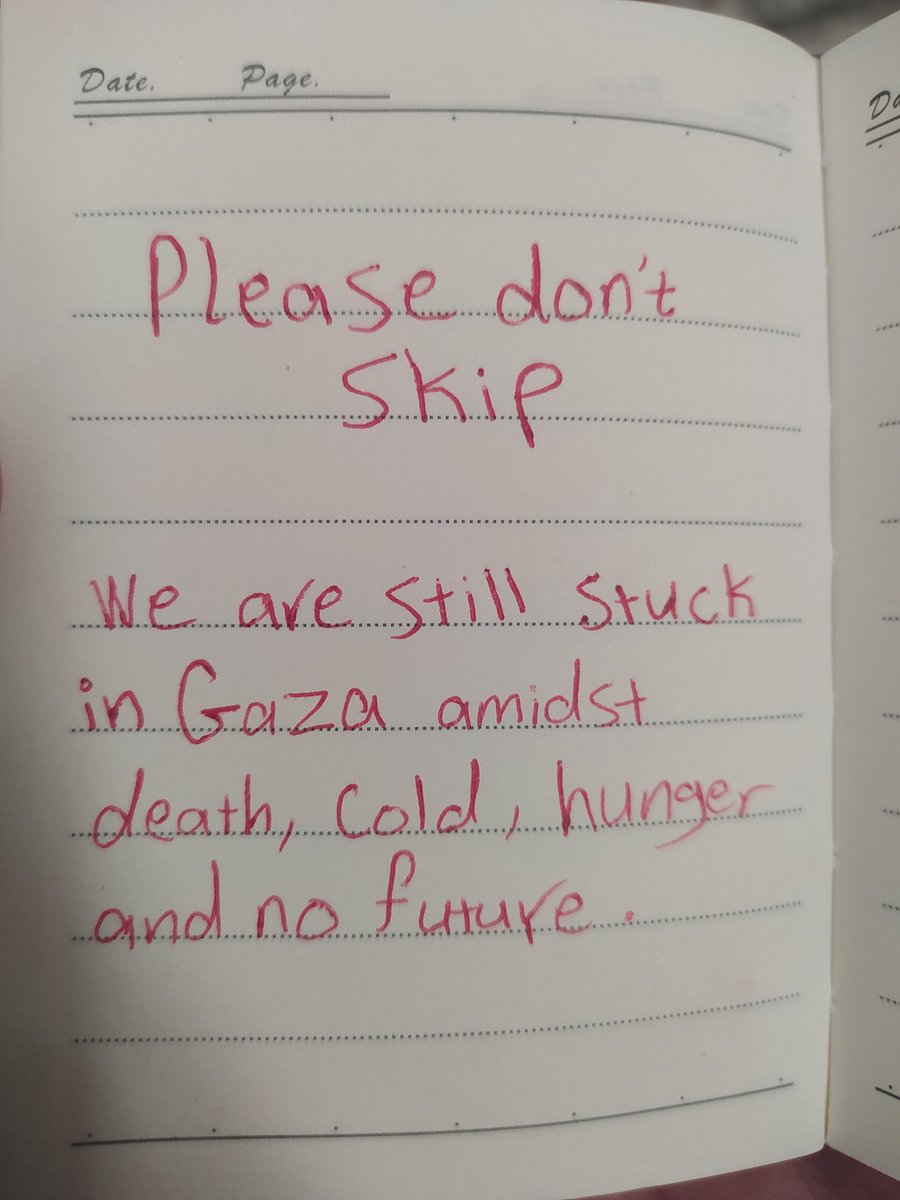 Date. Page.
Please don't
Skip
We are still stuck
in Gaza amidst
death, cold, hunger
and no future.
Da